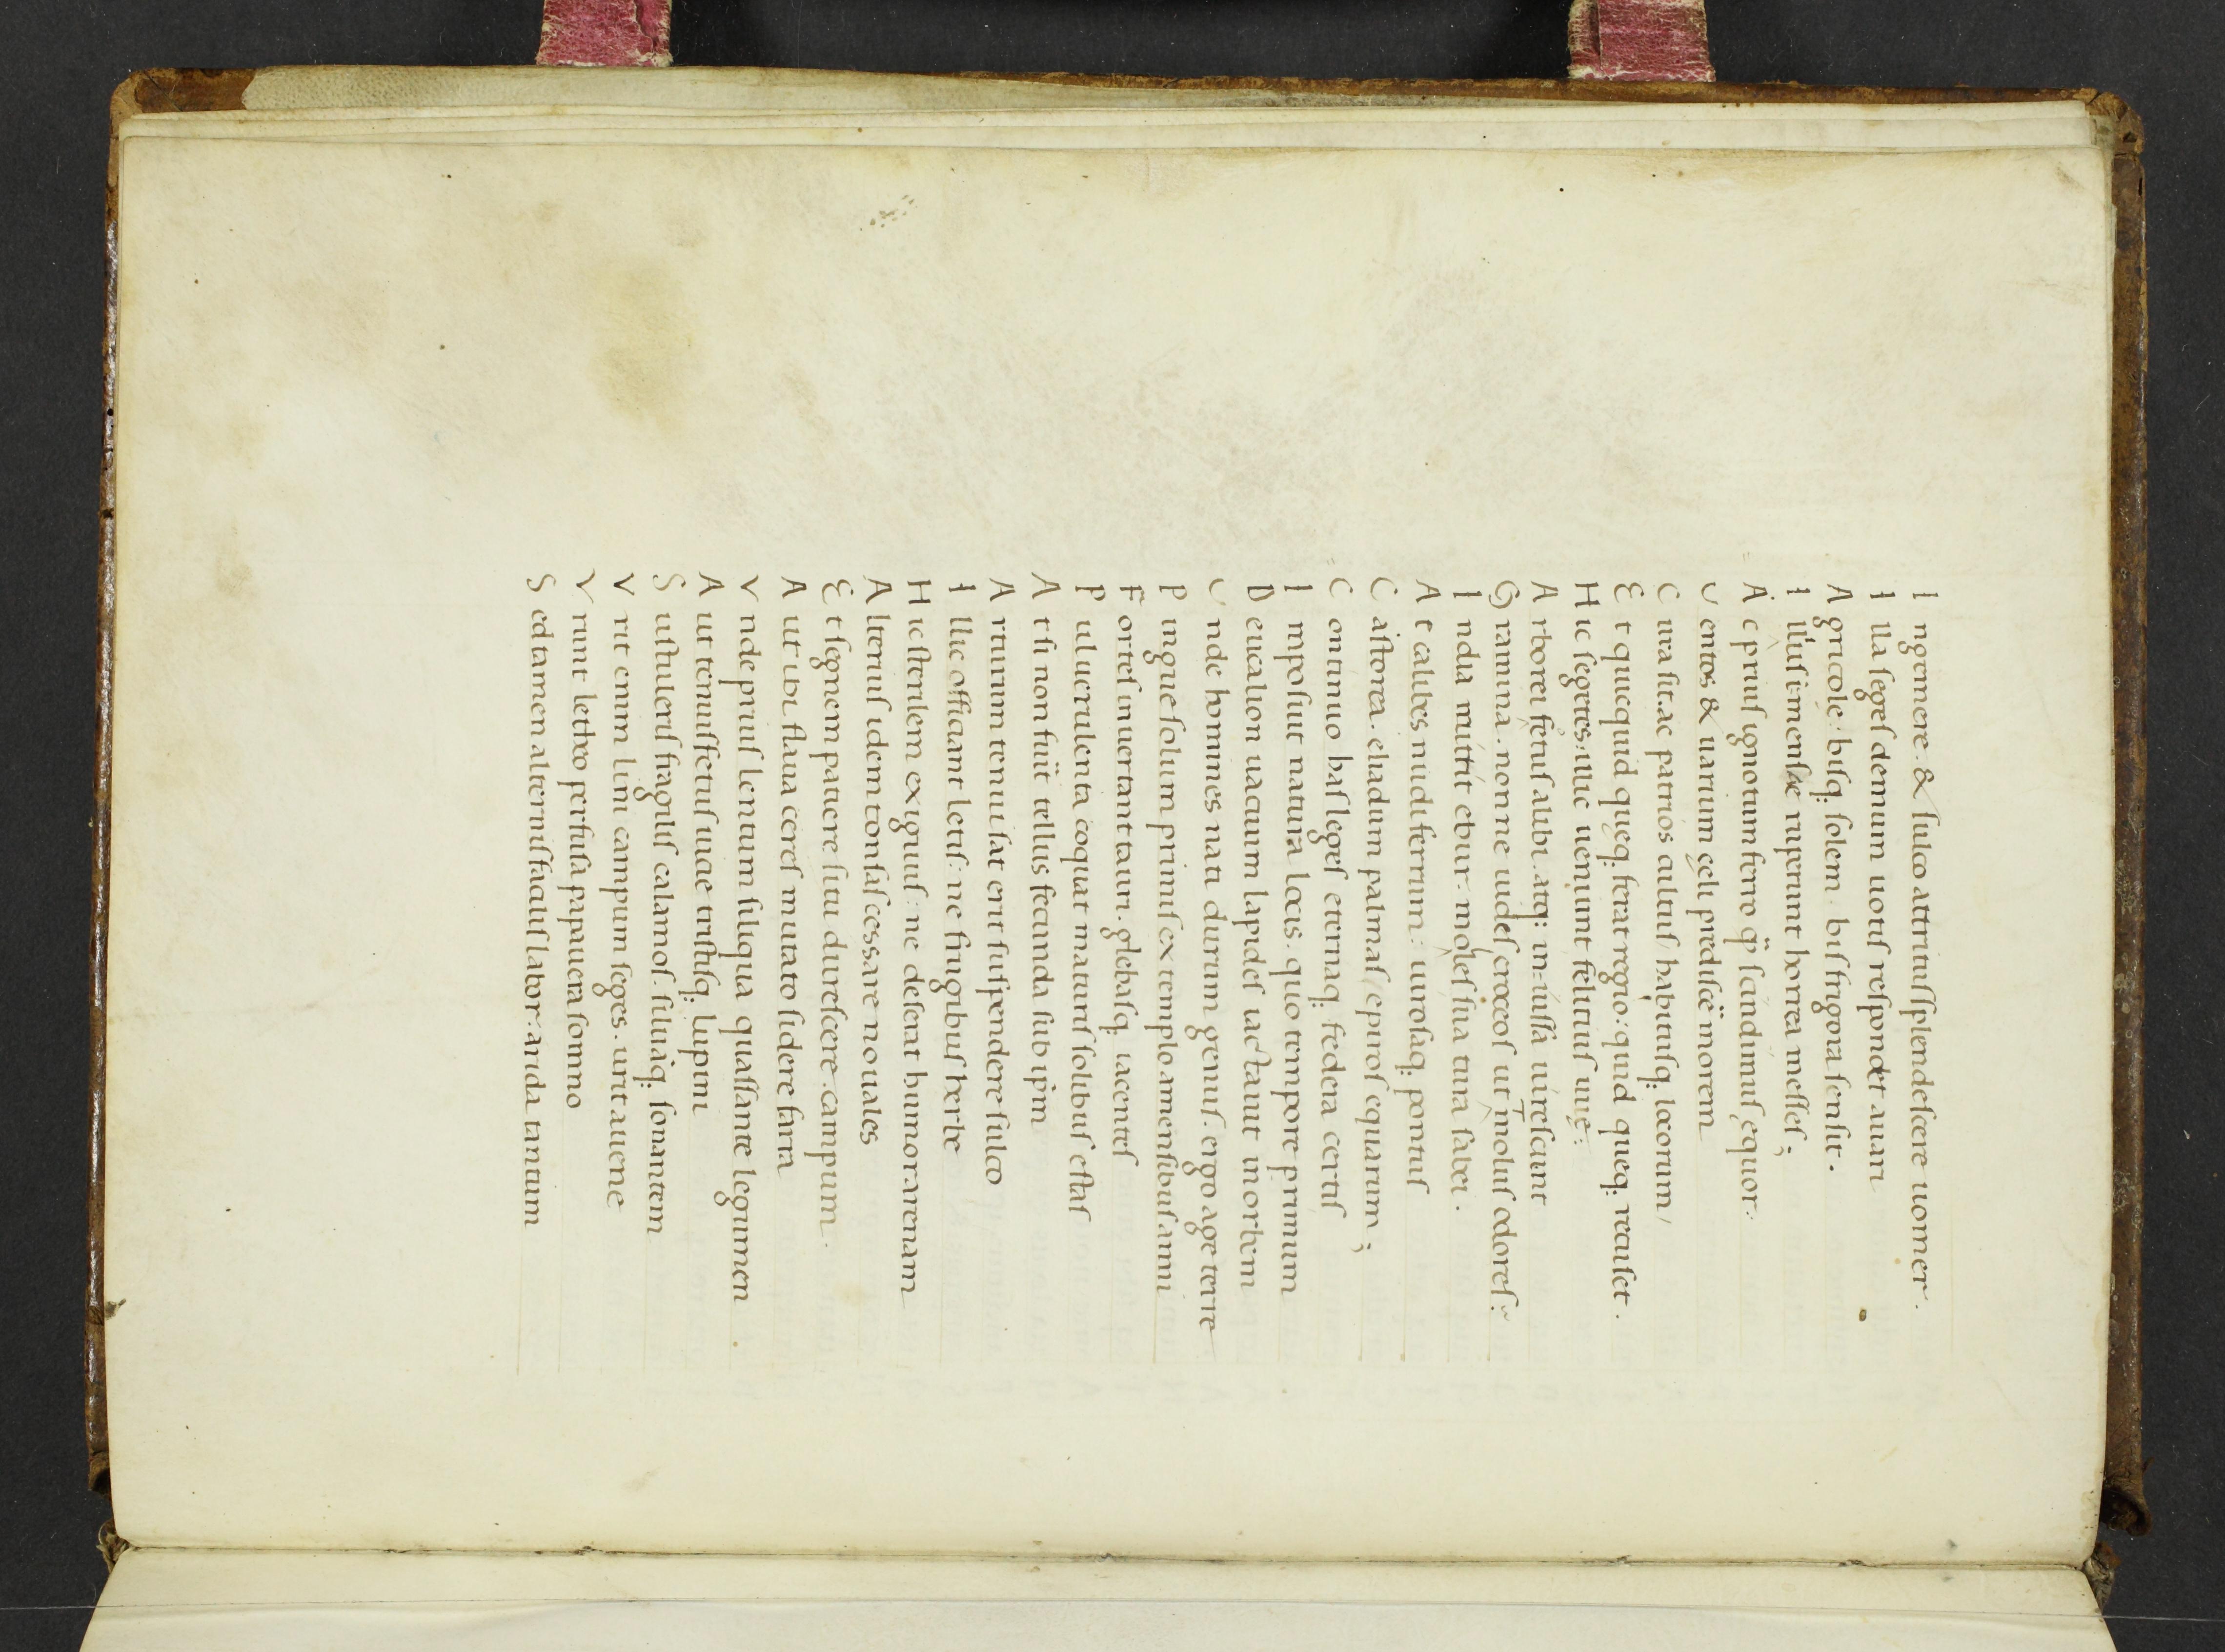 Ingemere. & sulco attritus splendescere uomer.
Illa seges demum uotis respondet auari
Agricole. bisq; solem. bis frigora sensit.
Illius īmensae ruperunt horrea messes;
Ac prius ignotum ferro q̄ scindimus equor.
Uentos & uarium celi prediscē morem
Cura sit. ac patrios cultus / habitusq; locorum /
Et quequid queq; ferat regio: quid queq; recuset.
Hic segetes: illic ueniunt felitius uuę:
Arborei fetus alibi. atq; in=iussa uirescunt
Gramina. nonne uides croceos ut tmolus odores:
India mittit ebur. moles sua tura sabei.
At calibes nudi ferrum: uirosaq; pontus
Castorea. eliadum palmas / epiros equarum;
Continuo has leges eternaq; federa certis
Imposuit natura locis. quo tempore primum
Deucalion uacuum lapides iactauit in orbem
Unde homines nati durum genus. ergo age terre
Pingue solum primis extemplo a mensibus anni
Fortes inuertant tauri. glebasq; iacentes
Puluerulenta coquat maturis solibus estas
At si non fuīt tellus fecunda sub ip̄m
Arturum tenui sat erit suspendere sulco
Illic officiant letis: ne frugibus herbe
Hic sterilem exiguus: ne deserat humor arenam
Alterius idem tonsas cessare nouales
Et segnem patiere situ durescere campum.
Aut ibi flaua ceres mutato sidere farra
Vnde prius lentum siliqua quassante legumen
Aut tenuis fetus uicie tristisq; lupini
Sustuleris fragilis calamos. siluaq; sonantem
Vrit enim lini campum seges. urit auene
Vrunt letheo perfusa papauera somno
Sed tamen alternis facilis labor. arida tantum